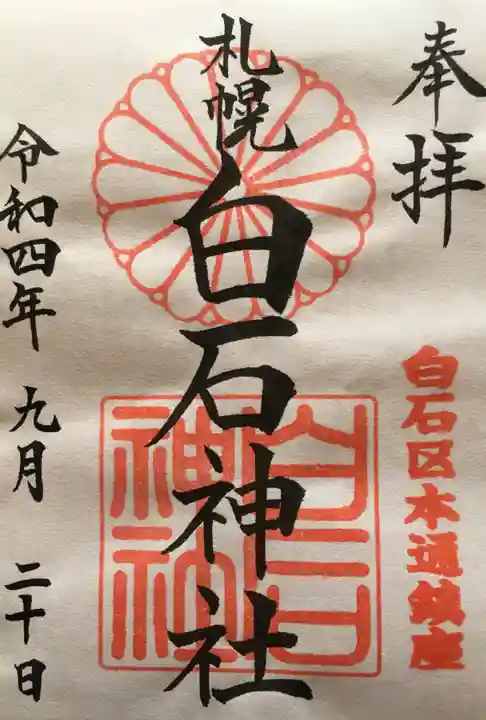 奉拝
白石区本通鎮座
札幌
白石神社
白石神社
令和四年 九月 二十日